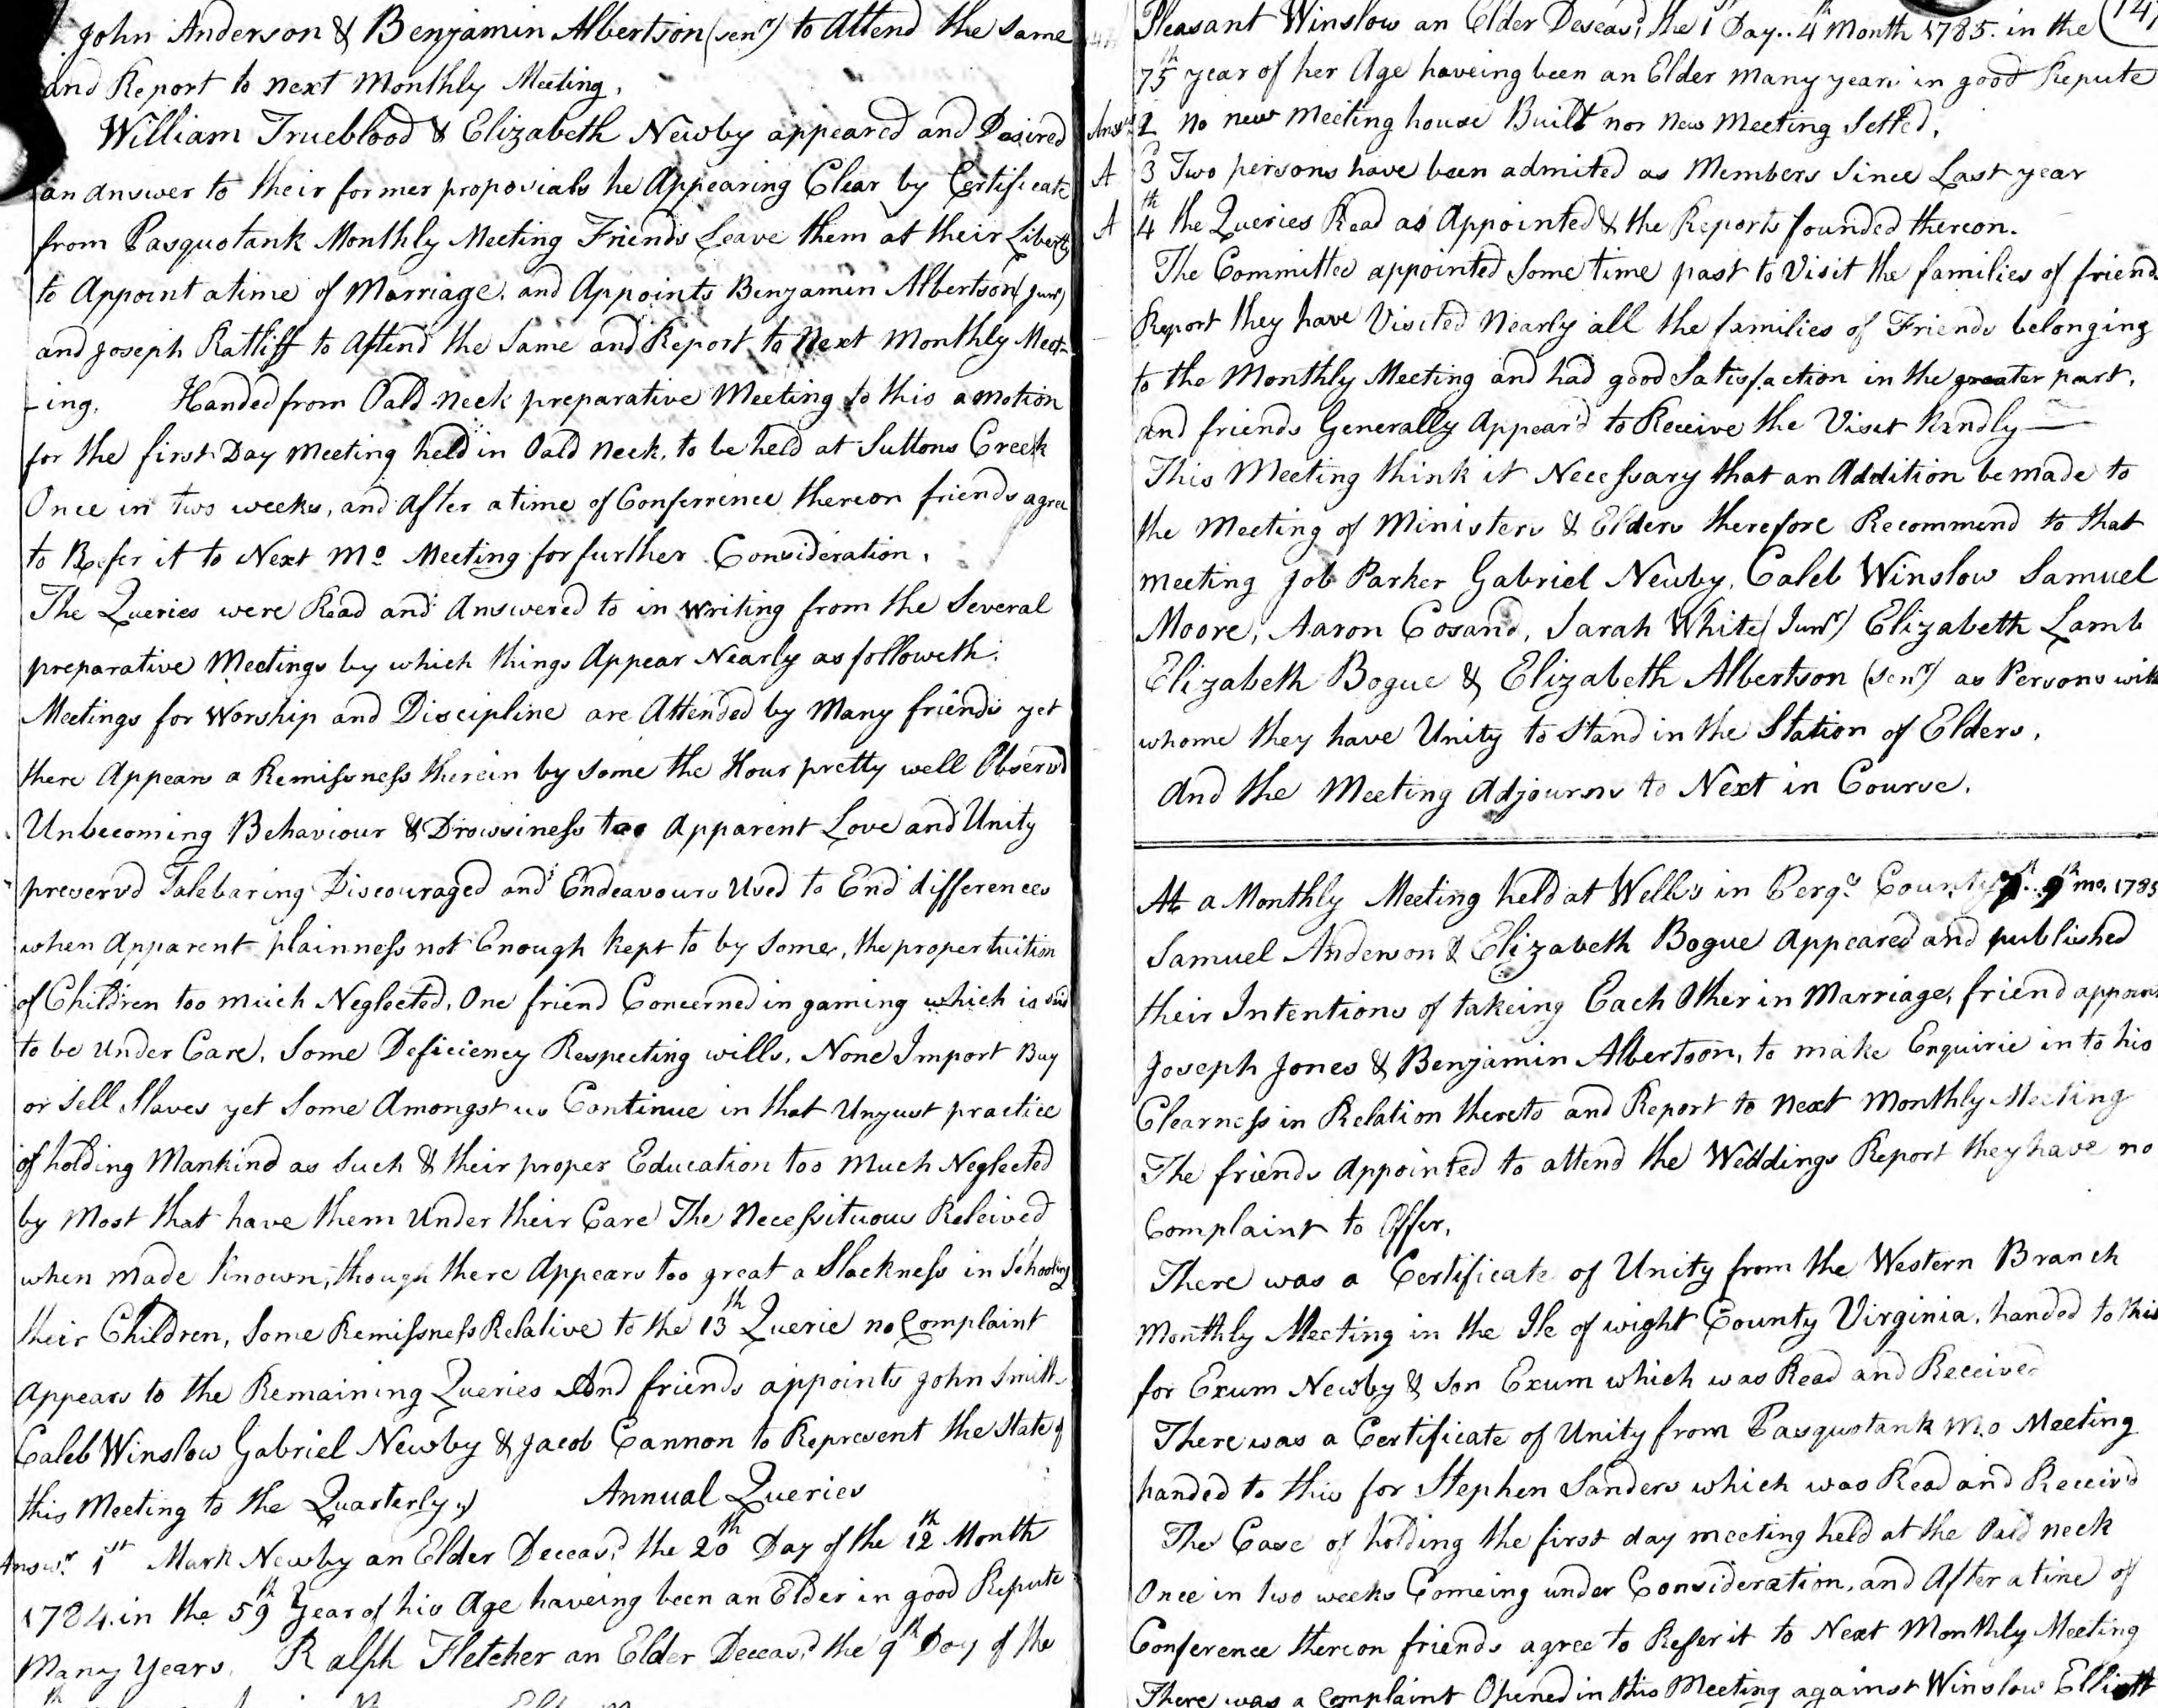 John Anderson & Benjamin Albertson (senr) to Attend the same
and Report to next Monthly Meeting.
William Trueblood & Elizabeth Newby appeared and Desired
an answer to their former proposials he Appearing Clear by Certificate
from Pasquotank Monthly Meeting Friends Leave them at their Liberty
to Appoint a time of Marriage, and Appoints Benjamin Albertson (Junr)
and Joseph Ratliff to Attend the Same and Report to Next Monthly Meet-
-ing. Handed from Oald Neck preparative Meeting to this a motion
for the first Day Meeting held in Oald Neck, to be held at Suttons Creek
Once in two weeks, and After a time of Conferrence thereon friends agree
to Refer it to Next Mo Meeting for further Consideration.
The Queries were Read and Answered to in Writing from the Several
preparative Meetings by which things Appear Nearly as followeth.
Meetings for Worship and Discipline are Attended by Many friends yet
there Appears a Remissness therein by some the Hour pretty well Observd
Unbecoming Behaviour & Drowsiness too Apparent Love and Unity
preserv'd Talebaring Discouraged and Endeavours Used to End differences
when Apparent plainness not Enough kept to by Some, the proper tuition
of Children too much Neglected, One friend Concerned in gaming which is said
to be Under Care. Some Deficiency Respecting wills, None Import Buy
or Sell Slaves yet Some Amongst us Continue in that Unjust practice
of holding Mankind as Such & their proper Education too Much Neglected
by Most that have them Under their Care The Necessituous Releived
when made Known, though there Appears too great a Slackness in Schooling
their Children, Some Remissness Relative to the 13th Querie no Complaint
Appears to the Remaining Queries And friends appoints John Smith
Caleb Winslow Gabriel Newby & Jacob Cannon to Represent the State of
this Meeting to the Quarterly Annual Queries
Answr 1st Mark Newby an Elder Deceasd the 20th Day of the 12th Month
1784. in the 59th Year of his Age haveing been an Elder in good Repute
Many Years. Ralph Fletcher an Elder Deceasd the 9th Day of the
Pleasant Winslow an Elder Deseasd the 1st Day.. 4th Month 1785. in the
75th year of her Age haveing been an Elder many years in good Repute
Answr 2 no new Meeting house Built nor New Meeting Settled,
A 3d Two persons have been admited as Members Since Last year
A 4th the Queries Read as Appointed & the Reports founded thereon.
The Committee appointed Some time past to Visit the families of friends
Report they have Visited Nearly all the families of Friends belonging
to the Monthly Meeting and had good Satisfaction in the greater part,
and friends Generally Appear'd to Receive the Visit Kindly —
This Meeting think it Necessary that an Addition be made to
the Meeting of Ministers & Elders therefore Recommend to that
meeting Job Parker Gabriel Newby, Caleb Winslow Samuel
Moore, Aaron Cosand, Sarah White (Junr) Elizabeth Lamb
Elizabeth Bogue & Elizabeth Albertson (senr) as Persons with
whome they have Unity to Stand in the Station of Elders,
And the Meeting Adjourns to Next in Course.
At a Monthly Meeting held at Wells's in Perqs County 7th.. 9th mo. 1785
Samuel Anderson & Elizabeth Bogue Appeared and published
their Intentions of takeing Each Other in Marriage, friend appoints
Joseph Jones & Benjamin Albertson, to make Enquirie in to his
Clearness in Relation thereto and Report to Next Monthly Meeting
The friends Appointed to attend the Weddings Report they have no
Complaint to Offer.
There was a Certificate of Unity from the Western Branch
Monthly Meeting in the Ile of wight County Virginia, handed to this
for Exum Newby & Son Exum which was Read and Received
There was a Certificate of Unity from Pasquotank M.o Meeting
handed to this for Stephen Sanders which was Read and Receiv'd
The Case of holding the first day meeting held at the Oald neck
Once in two weeks Comeing under Consideration, and After a time of
Conference thereon friends agree to Refer it to Next Monthly Meeting
There was a Complaint Opened in this Meeting against Winslow Elliott